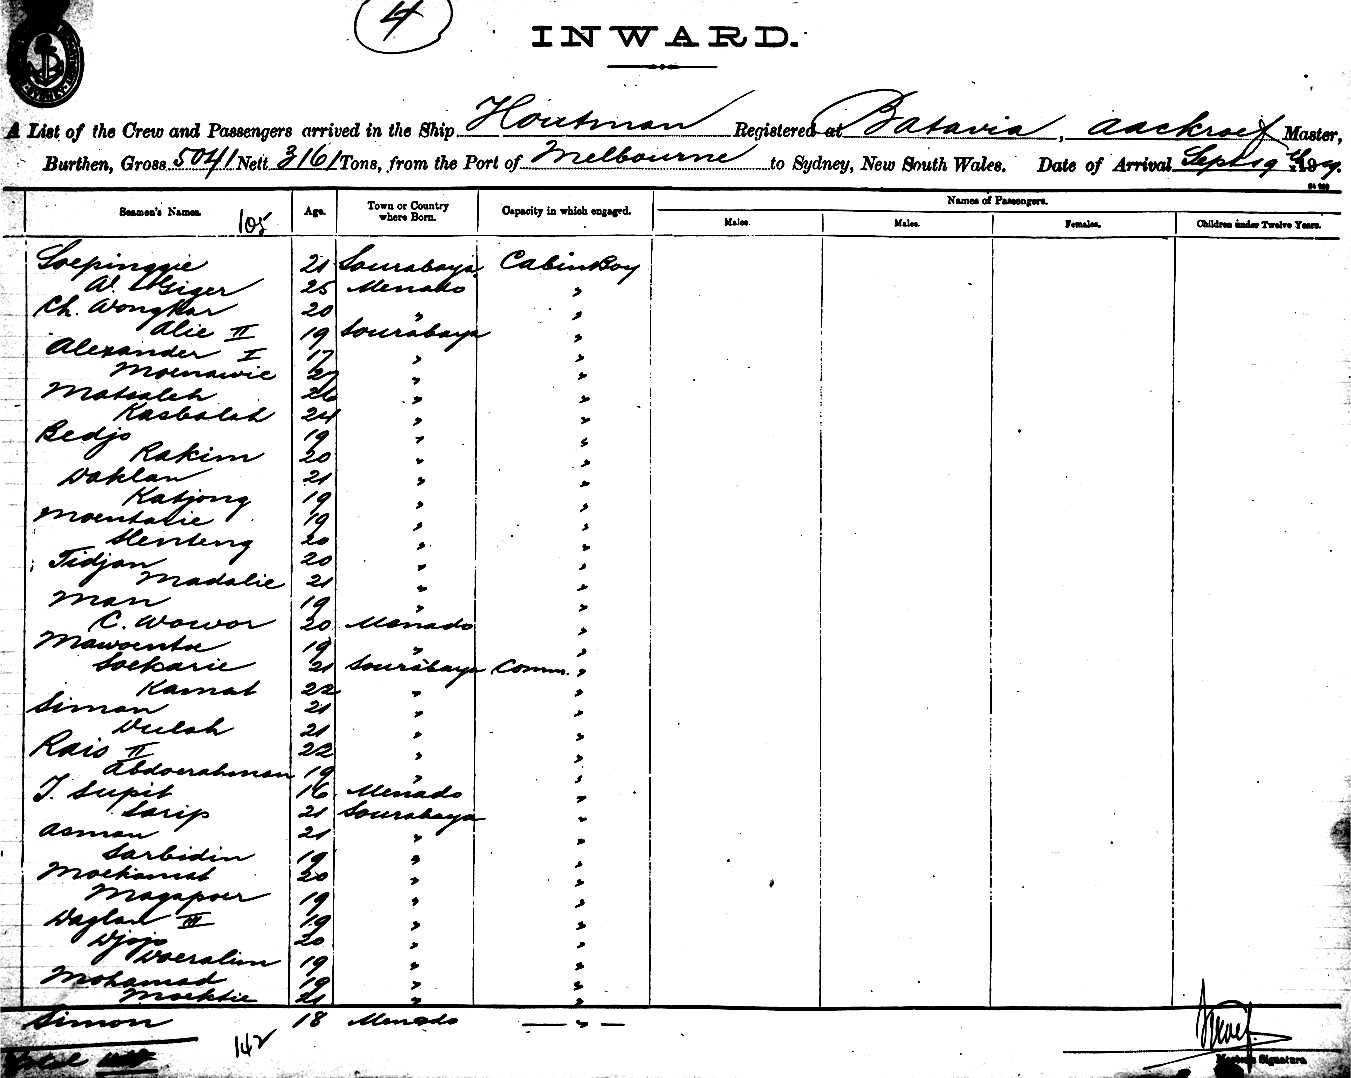 4
INWARD.
A List of the Crew and Passengers arrived in the Ship Houtman Registered at Batavia, Aackroef Master,
Burthen, Gross 5041 Nett 3161 Tons, from the Port of Melbourne to Sydney, New South Wales. Date of Arrival Sept 19th 19
Seamen's Names. 105 Age. Town or Country where Born. Capacity in which engaged. Names of Passengers.
Males. Males. Females. Children under Twelve Years.
Soepinggie 21 Sourabaya Cabin Boy
W. Giger 25 Menado "
Ch. Wongkar 20 " "
Alie II 19 Sourabaya "
Alexander I 17 " "
Moenawie 27 " "
Matsaleh 26 " "
Kasbolah 24 " "
Bedjo 19 " "
Rakim 20 " "
Daklan 21 " "
Katjong 19 " "
Moentasie 19 " "
Slenteng 20 " "
Tidjan 20 " "
Madalie 21 " "
Man 19 " "
C. Wowor 20 Menado "
Mawoentoe 19 " "
Soekarie 21 Sourabaya Comm. "
Kamat 22 " "
Siman 21 " "
Dulah 21 " "
Rais II 22 " "
Abdoerahman 19 " "
J. Supit 16 Menado "
Sarip 21 Sourabaya "
Asman 21 " "
Sarbidin 19 " "
Moekamat 20 " "
Magapoer 19 " "
Daglan III 19 " "
Djojo 20 " "
Doeralim 19 " "
Mohamad 19 " "
Moektie 21 " "
Simon 18 Menado — " —
Total 142
Master's Signature.